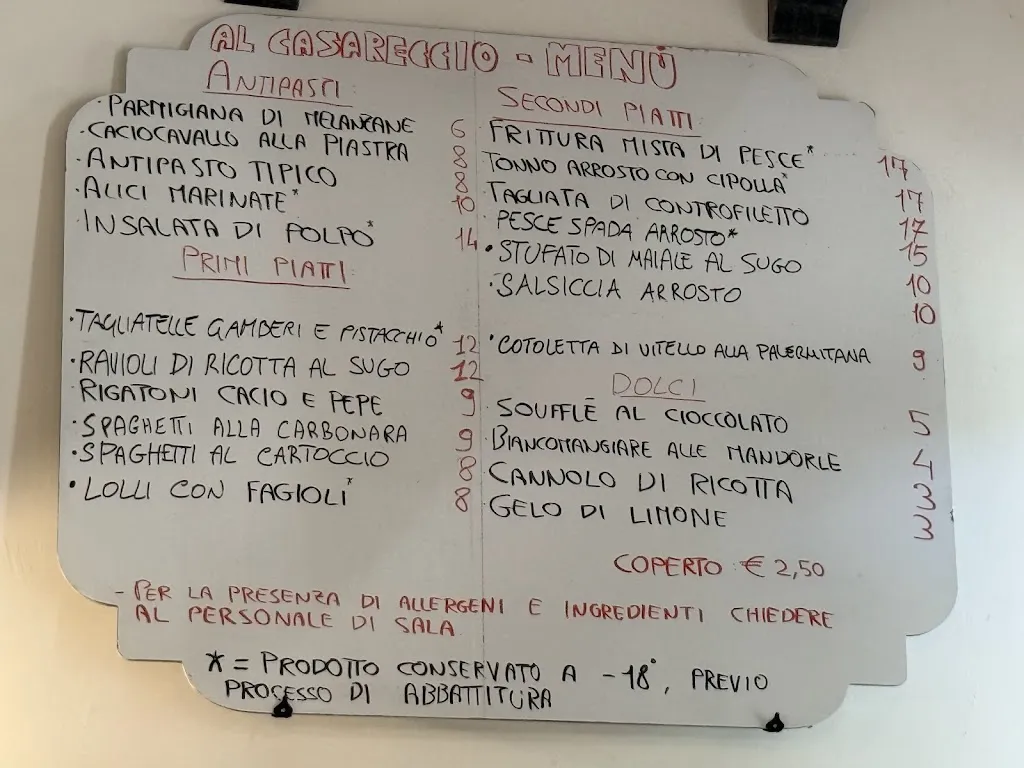 AL CASARECCIO - MENÙ
ANTIPASTI:
· PARMIGIANA DI MELANZANE 6
· CACIOCAVALLO ALLA PIASTRA 8
· ANTIPASTO TIPICO 8
· ALICI MARINATE* 10
· INSALATA DI POLPO* 14
PRIMI PIATTI:
· TAGLIATELLE GAMBERI E PISTACCHIO* 12
· RAVIOLI DI RICOTTA AL SUGO 12
· RIGATONI CACIO E PEPE 9
· SPAGHETTI ALLA CARBONARA 9
· SPAGHETTI AL CARTOCCIO 8
· LOLLI CON FAGIOLI* 8
SECONDI PIATTI:
· FRITTURA MISTA DI PESCE* 17
· TONNO ARROSTO CON CIPOLLA* 17
· TAGLIATA DI CONTROFILETTO 17
· PESCE SPADA ARROSTO* 15
· STUFATO DI MAIALE AL SUGO 10
· SALSICCIA ARROSTO 10
· COTOLETTA DI VITELLO ALLA PALERMITANA 9
DOLCI
· SOUFFLÈ AL CIOCCOLATO 5
· BIANCOMANGIARE ALLE MANDORLE 4
· CANNOLO DI RICOTTA 3
· GELO DI LIMONE 3
COPERTO: € 2,50
- PER LA PRESENZA DI ALLERGENI E INGREDIENTI CHIEDERE
AL PERSONALE DI SALA
* = PRODOTTO CONSERVATO A -18°, PREVIO
PROCESSO DI ABBATTITURA